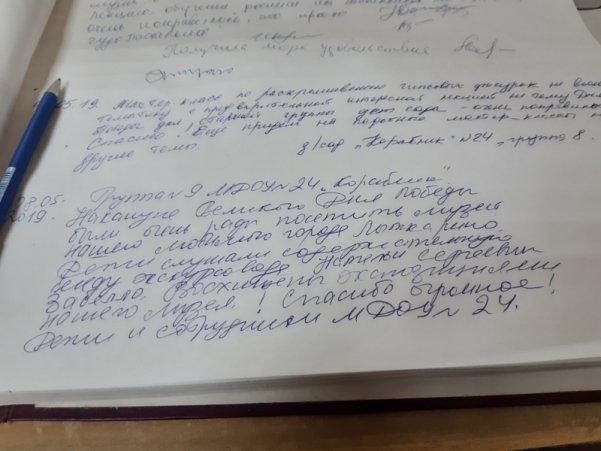 очень понравилось, это просто
Получили море удовольствия
05.19. Мастер-класс по раскрашиванию гипсовых фигурок на военную
тематику с предварительной интересной лекцией на тему Дня
Победы для старшей группы дет. сада - очень понравился.
Спасибо! Еще придем на подобные мастер-классы на
другие темы.
д/сад "Кораблик" №24, группа 8.
08.05. Группа №9 МДОУ №24 "Кораблик"
2019. Накануне Великого Дня Победы
были очень рады посетить музей
нашего любимого города Лыткарино.
Дети слушали содержательную
экскурсовода Натальи Сергеевны
Восхищены экспозициями
нашего музея! Спасибо огромное!
Дети и сотрудники МДОУ №24.